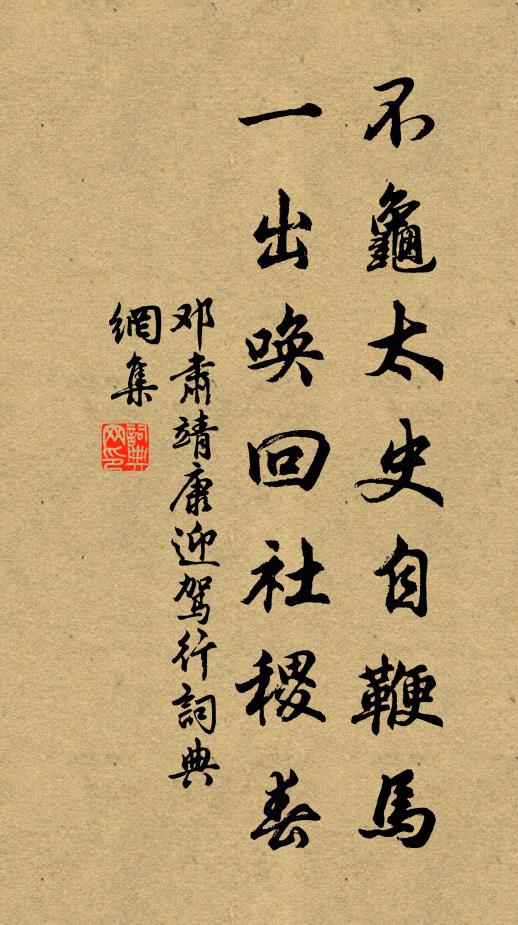 不龜太史自鞭馬
一出唤回社稷春
邓肅靖康迎驾行詞典
網集
詞典
网印